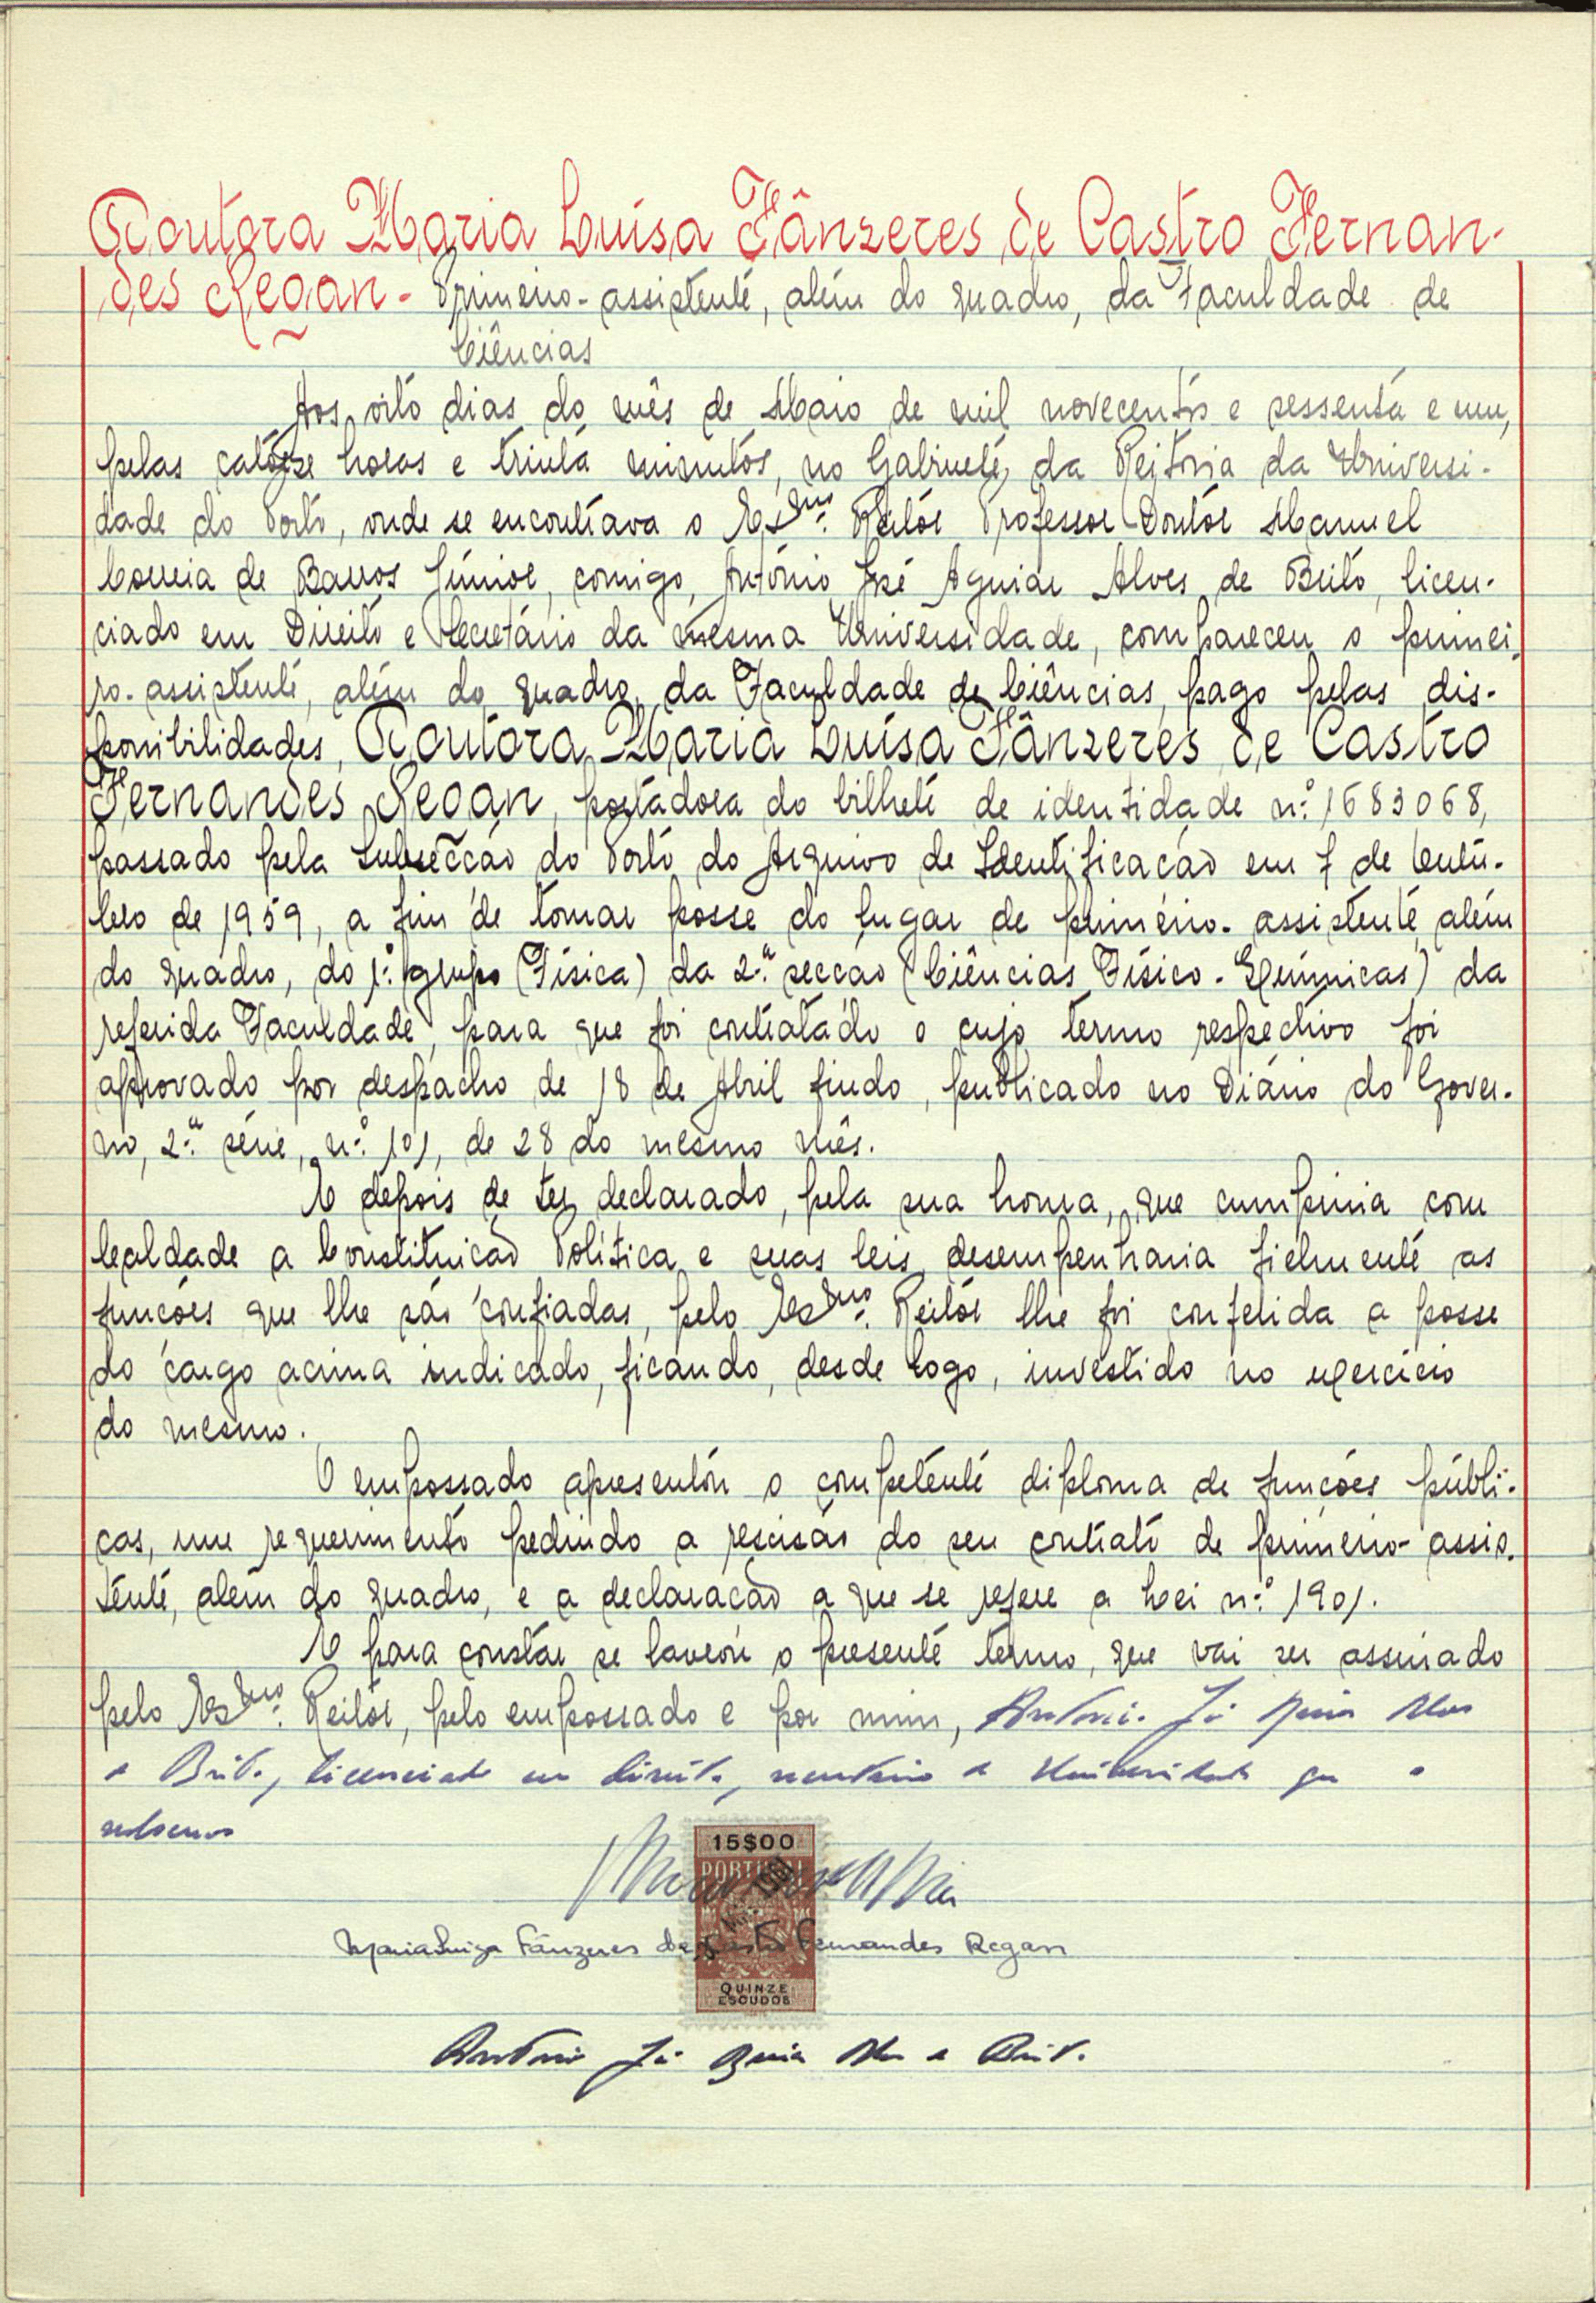 Doutora Maria Luísa Fânzeres de Castro Fernan-
des Regan - Primeiro-assistente, além do quadro, da Faculdade de
Ciências
Aos oito dias do mês de Maio de mil novecentos e sessenta e um,
pelas catorze horas e trinta minutos, no Gabinete da Reitoria da Universi-
dade do Porto, onde se encontrava o Exmo. Reitor Professor Doutor Manuel
Correia de Barros Júnior, comigo, António José Aguiar Alves de Brito, licen-
ciado em Direito e Secretário da mesma Universidade, compareceu o primei-
ro-assistente, além do quadro, da Faculdade de Ciências, pago pelas dis-
ponibilidades, Doutora Maria Luísa Fânzeres de Castro
Fernandes Regan, portadora do bilhete de identidade n.º 1683068,
passado pela Subsecção do Porto do Arquivo de Identificação em 7 de Outu-
bro de 1959, a fim de tomar posse do lugar de primeiro-assistente além
do quadro, do 1.º grupo (Física) da 2.ª secção (Ciências Físico-Químicas) da
referida Faculdade, para que foi contratado e cujo termo respectivo foi
aprovado por despacho de 18 de Abril findo, publicado no Diário do Gover-
no, 2.ª série, n.º 101, de 28 do mesmo mês.
E depois de ter declarado, pela sua honra, que cumpriria com
lealdade a Constituição Política e suas leis, desempenharia fielmente as
funções que lhe são confiadas, pelo Exmo. Reitor lhe foi conferida a posse
do cargo acima indicado, ficando, desde logo, investido no exercício
do mesmo.
O empossado apresentou o competente diploma de funções públi-
cas, um requerimento pedindo a rescisão do seu contrato de primeiro-assis-
tente, além do quadro, e a declaração a que se refere a Lei n.º 1901.
E para constar se lavrou o presente termo, que vai ser assinado
pelo Exmo. Reitor, pelo empossado e por mim, António José Aguiar Alves
de Brito, licenciado em direito, secretário da Universidade que o
subscrevo
15$00
PORTUGAL
Maria Luiza Fânzeres de Castro Fernandes Regan
QUINZE
ESCUDOS
António José Aguiar Alves de Brito